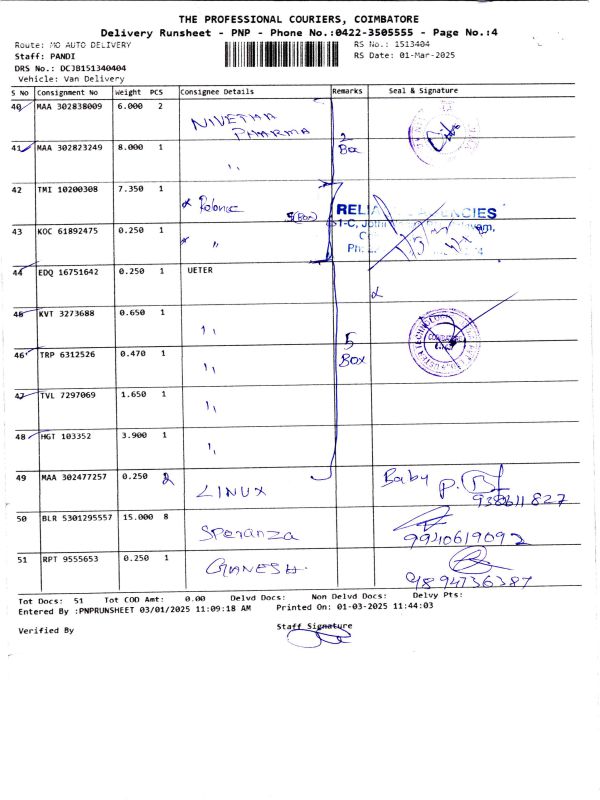 THE PROFESSIONAL COURIERS, COIMBATORE
Delivery Runsheet - PNP - Phone No.:0422-3505555 - Page No.:4
Route: MG AUTO DELIVERY RS No.: 1513404
Staff: PANDI RS Date: 01-Mar-2025
DRS No.: DCJB151340404
Vehicle: Van Delivery
S No Consignment No Weight PCS Consignee Details Remarks Seal & Signature
40 MAA 302838009 6.000 2 NIVETHA PHARMA 2
41 MAA 302823249 8.000 1 " Box
42 TMI 10200308 7.350 1 Reliance 5(Box) RELIANCE AGENCIES
43 KOC 61892475 0.250 1 "
44 EDQ 16751642 0.250 1 UETER
45 KVT 3273688 0.650 1 " 5
46 TRP 6312526 0.470 1 " Box
47 TVL 7297069 1.650 1 "
48 HGT 103352 3.900 1 "
49 MAA 302477257 0.250 2 LINUX Baby P.
50 BLR 5301295557 15.000 8 Speranza 9940619092
51 RPT 9555653 0.250 1 GANESH. 9894736387
Tot Docs: 51 Tot COD Amt: 0.00 Delvd Docs: Non Delvd Docs: Delvy Pts:
Entered By :PNPRUNSHEET 03/01/2025 11:09:18 AM Printed On: 01-03-2025 11:44:03
Verified By Staff Signature